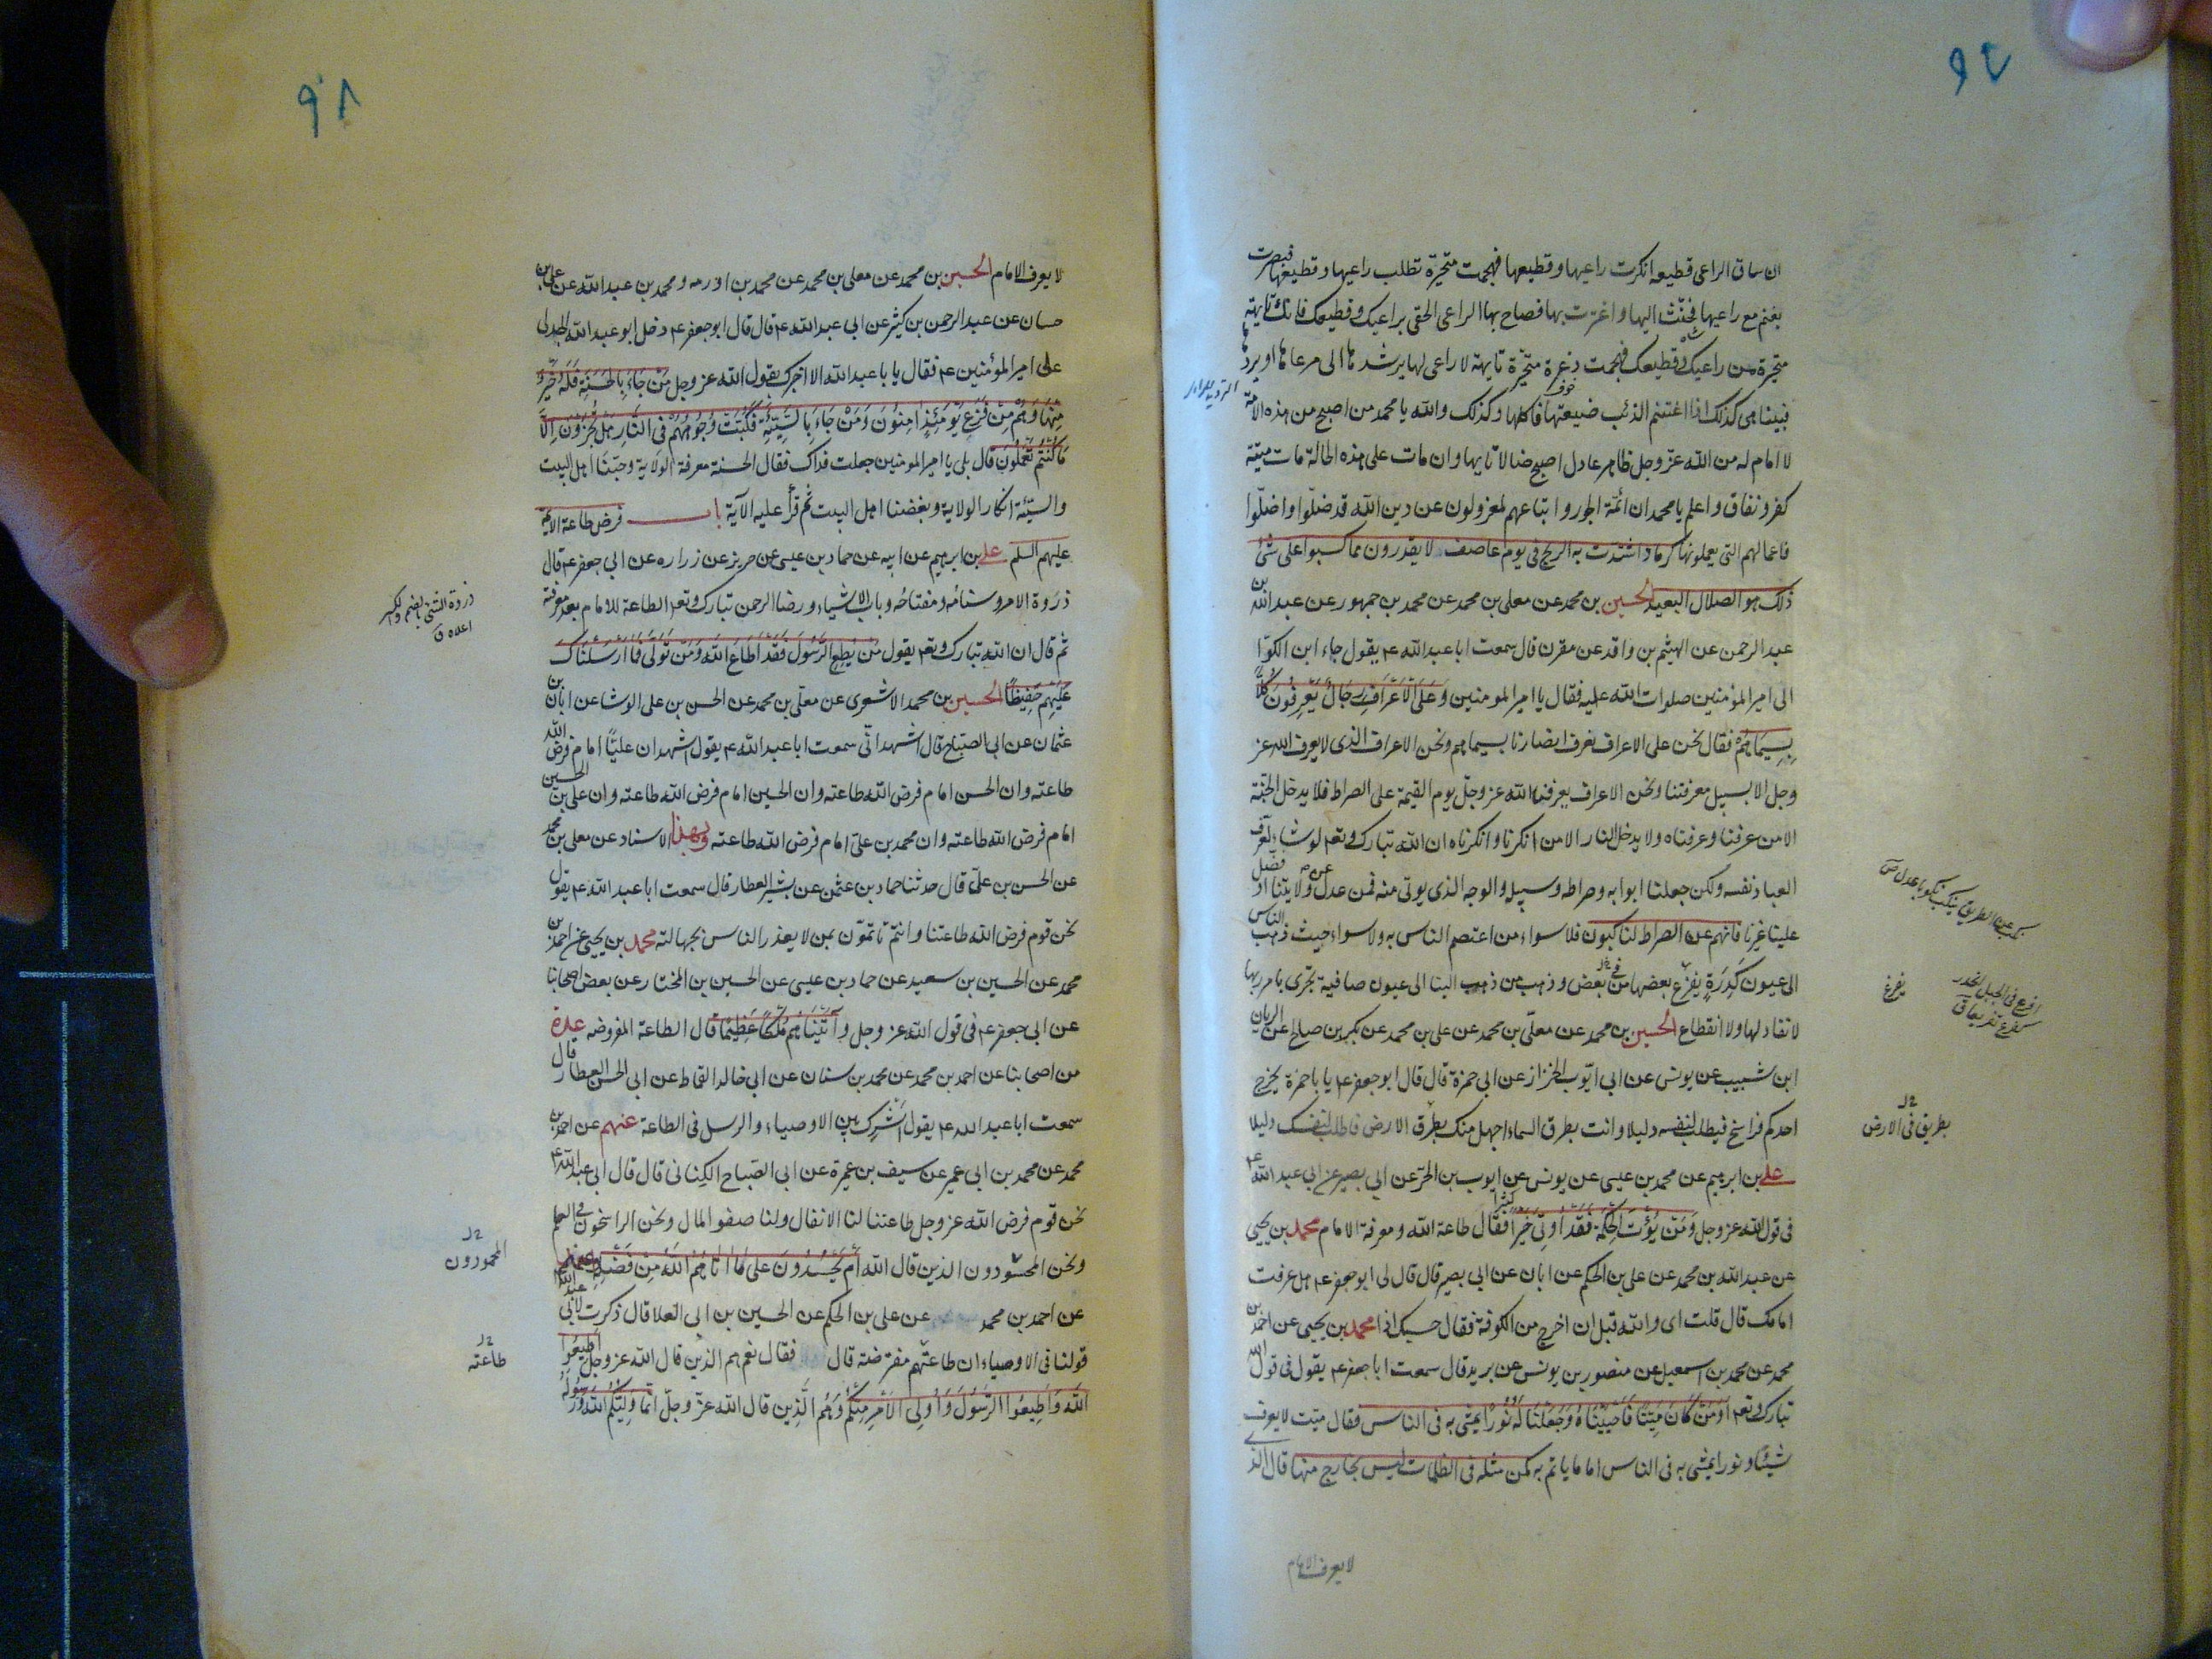 ٩٧
ان ساق الراعى قطيعه انكرت راعيها وقطيعها فهجمت متحيرة تطلب راعيها وقطيعها فبصرت
بغنم مع راعيها فحنّت اليها واغترت بها فصاح بها الراعى الحقى براعيك وقطيعك فانك تايهة
متحيرة عن راعيك وقطيعك فهجمت ذعرة متحيرة تايهة لا راعى لها يرشدها الى مرعاها او يردها
فبينا هى كذلك اذا اغتنم الذئب ضيعتها فاكلها وكذلك والله يا محمد من اصبح من هذه الامة
لا امام له من الله عزّ وجل ظاهر عادل اصبح ضالا تايها وان مات على هذه الحالة مات ميتة
كفر ونفاق واعلم يا محمد ان ائمّة الجور واتباعهم لمعزولون عن دين الله قد ضلّوا واضلّوا
فاعمالهم التى يعملونها كرماد اشتدت به الريح فى يوم عاصف لا يقدرون مما كسبوا على شئ
ذلك هو الضلال البعيد الحسين بن محمد عن معلى بن محمد عن محمد بن جمهور عن عبد الله بن
عبد الرحمن عن الهيثم بن واقد عن مقرن قال سمعت ابا عبد الله ع يقول جاء ابن الكوّا
الى امير المؤمنين صلوات الله عليه فقال يا امير المومنين وَعَلَى الْاَعْرَافِ رِجَالٌ يَعْرِفُونَ كُلًّا
بِسِيمَاهُمْ فقال نحن على الاعراف نعرف انصارنا بسيماهم ونحن الاعراف الذى لا يعرف الله عز
وجل الا بسبيل معرفتنا ونحن الاعراف يعرفنا الله عز وجلّ يوم القيمة على الصراط فلا يدخل الجنّة
الا من عرفنا وعرفناه ولا يدخل النار الا من انكرنا وانكرناه ان الله تبارك وتعم لو شاء لعرّف
العباد نفسه ولكن جعلنا ابوابه وصراطه وسبيله والوجه الذى يوتى منه فمن عدل عن ولايتنا او فضل
علينا غيرنا فانهم عن الصراط لناكبون فلا سواء من اعتصم الناس به ولا سواء حيث ذهب الناس
الى عيون كَدِرَةٍ يفرع بعضها من بعض وذهب من ذهب الينا الى عيون صافية تجرى بامر ربها
لا نفاد لها ولا انقطاع الحسين بن محمد عن معلّى بن محمد عن على بن محمد عن بكر بن صالح عن الريان
ابن شبيب عن يونس عن ابى ايّوب الخزاز عن ابى حمزة قال قال ابو جعفر ع يا با حمزة يخرج
احدكم فراسخ فيطلب لنفسه دليلا وانت بطرق السماء اجهل منك بطرق الارض فاطلب لنفسك دليلا
على بن ابرهيم عن محمد بن عيسى عن يونس عن ايوب بن الحرّ عن ابى بصير عن ابى عبد الله ع
فى قول الله عز وجل وَمَنْ يُؤْتَ الْحِكْمَةَ فَقَدْ اُوتِىَ خَيْرًا كثيرا فقال طاعة الله ومعرفة الامام محمد بن يحيى
عن عبد الله بن محمد عن على بن الحكم عن ابان عن ابى بصير قال قال لى ابو جعفر ع هل عرفت
امامك قال قلت اى والله قبل ان اخرج من الكوفة فقال حسبك اذا محمد بن يحيى عن احمد بن
محمد عن محمد بن اسمعيل عن منصور بن يونس عن بريد قال سمعت ابا جعفر ع يقول فى قول الله
تبارك وتعم اَوَمَنْ كَانَ مَيْتًا فَاَحْيَيْنَاهُ وَجَعَلْنَا لَهُ نُورًا يمشى به فى الناس فقال ميت لا يعرف
شيئا ونورا يمشى به فى الناس اماما ياتم به كمن مثله فى الظلمات ليس بخارج منها قال الذى
لا يعرف الامام
يفرغ
بطريق فى الارض
٩٨
لا يعرف الامام الحسين بن محمد عن معلى بن محمد عن محمد بن اورمه ومحمد بن عبد الله عن على بن
حسان عن عبد الرحمن بن كثير عن ابى عبد الله ع قال قال ابو جعفر ع دخل ابو عبد الله الجدلى
على امير المؤمنين ع فقال يا با عبد الله الا اخبرك بقول الله عز وجل مَنْ جَاءَ بِالْحَسَنَةِ فَلَهُ خَيْرٌ
مِنْهَا وَهُمْ مِنْ فَزَعٍ يَوْمَئِذٍ اٰمِنُونَ وَمَنْ جَاءَ بِالسَّيِّئَةِ فَكُبَّتْ وُجُوهُهُمْ فِى النَّارِ هَلْ تُجْزَوْنَ اِلَّا
مَا كُنْتُمْ تَعْمَلُونَ قال بلى يا امير المومنين جعلت فداك فقال الحسنة معرفة الولاية وحبّنا اهل البيت
والسيّئة انكار الولاية وبغضنا اهل البيت ثم قرأ عليه الآية باب فرض طاعة الائمة
عليهم السلم على بن ابرهيم عن ابيه عن حماد بن عيسى عن حريز عن زراره عن ابى جعفر ع قال
ذروة الامر وسنامُه ومفتاحُه وباب الاشياء ورضا الرحمن تبارك وتعم الطاعة للامام بعد معرفته
ثم قال ان الله تبارك وتعم يقول مَنْ يُطِعِ الرَّسُولَ فَقَدْ اَطَاعَ اللهَ وَمَنْ تَوَلّٰى فَمَا اَرْسَلْنَاكَ
عَلَيْهِمْ حَفِيظًا الحسين بن محمد الاشعرى عن معلّى بن محمد عن الحسن بن على الوشا عن ابان بن
عثمان عن ابى الصبّاح قال اشهد انّى سمعت ابا عبد الله ع يقول اشهد ان عليّا امام فرض الله
طاعته وان الحسن امام فرض الله طاعته وان الحسين امام فرض الله طاعته وان على بن الحسين
امام فرض الله طاعته وان محمد بن علىّ امام فرض الله طاعته وبهذا الاسناد عن معلى بن محمد
عن الحسن بن علىّ قال حدثنا حماد بن عثمن عن بشير العطار قال سمعت ابا عبد الله ع يقول
نحن قوم فرض الله طاعتنا وانتم تاتمّون بمن لا يعذر الناس بجهالته محمد بن يحيى عن احمد بن
محمد عن الحسين بن سعيد عن حماد بن عيسى عن الحسين بن المختار عن بعض اصحابنا
عن ابى جعفر ع فى قول الله عز وجل وَآتَيْنَاهُمْ مُلْكًا عَظِيمًا قال الطاعة المفروضه عدة
من اصحابنا عن احمد بن محمد عن محمد بن سنان عن ابى خالد القماط عن ابى الحسن العطار قال
سمعت ابا عبد الله ع يقول اَشْرِك بين الاوصياء والرسل فى الطاعة عنهم عن احمد بن
محمد عن محمد بن ابى عمير عن سيف بن عميرة عن ابى الصّباح الكِنانى قال قال ابى عبد الله ع
نحن قوم فرض الله عز وجل طاعتنا لنا الانفال ولنا صفو المال ونحن الراسخون فى العلم
ونحن المحسودون الذين قال الله اَمْ يَحْسُدُونَ عَلٰى مَا اٰتَاهُمُ اللهُ مِنْ فَضْلِهِ
عن احمد بن محمد عن على بن الحكم عن الحسين بن ابى العلا قال ذكرت لابى عبد الله ع
قولنا فى الاوصياء ان طاعتهم مفترضة قال فقال نعم هم الذين قال الله عز وجل اَطِيعُوا
اللهَ وَاَطِيعُوا الرَّسُولَ وَاُولِى الْاَمْرِ مِنْكُمْ وَهُمُ الَّذِينَ قال الله عزّ وجلّ انّمَا وَلِيُّكُمُ اللهُ وَرَسُولُهُ
ذروة الشئ بالضم والكسر
اعلاه ق
المحمودون
طاعته